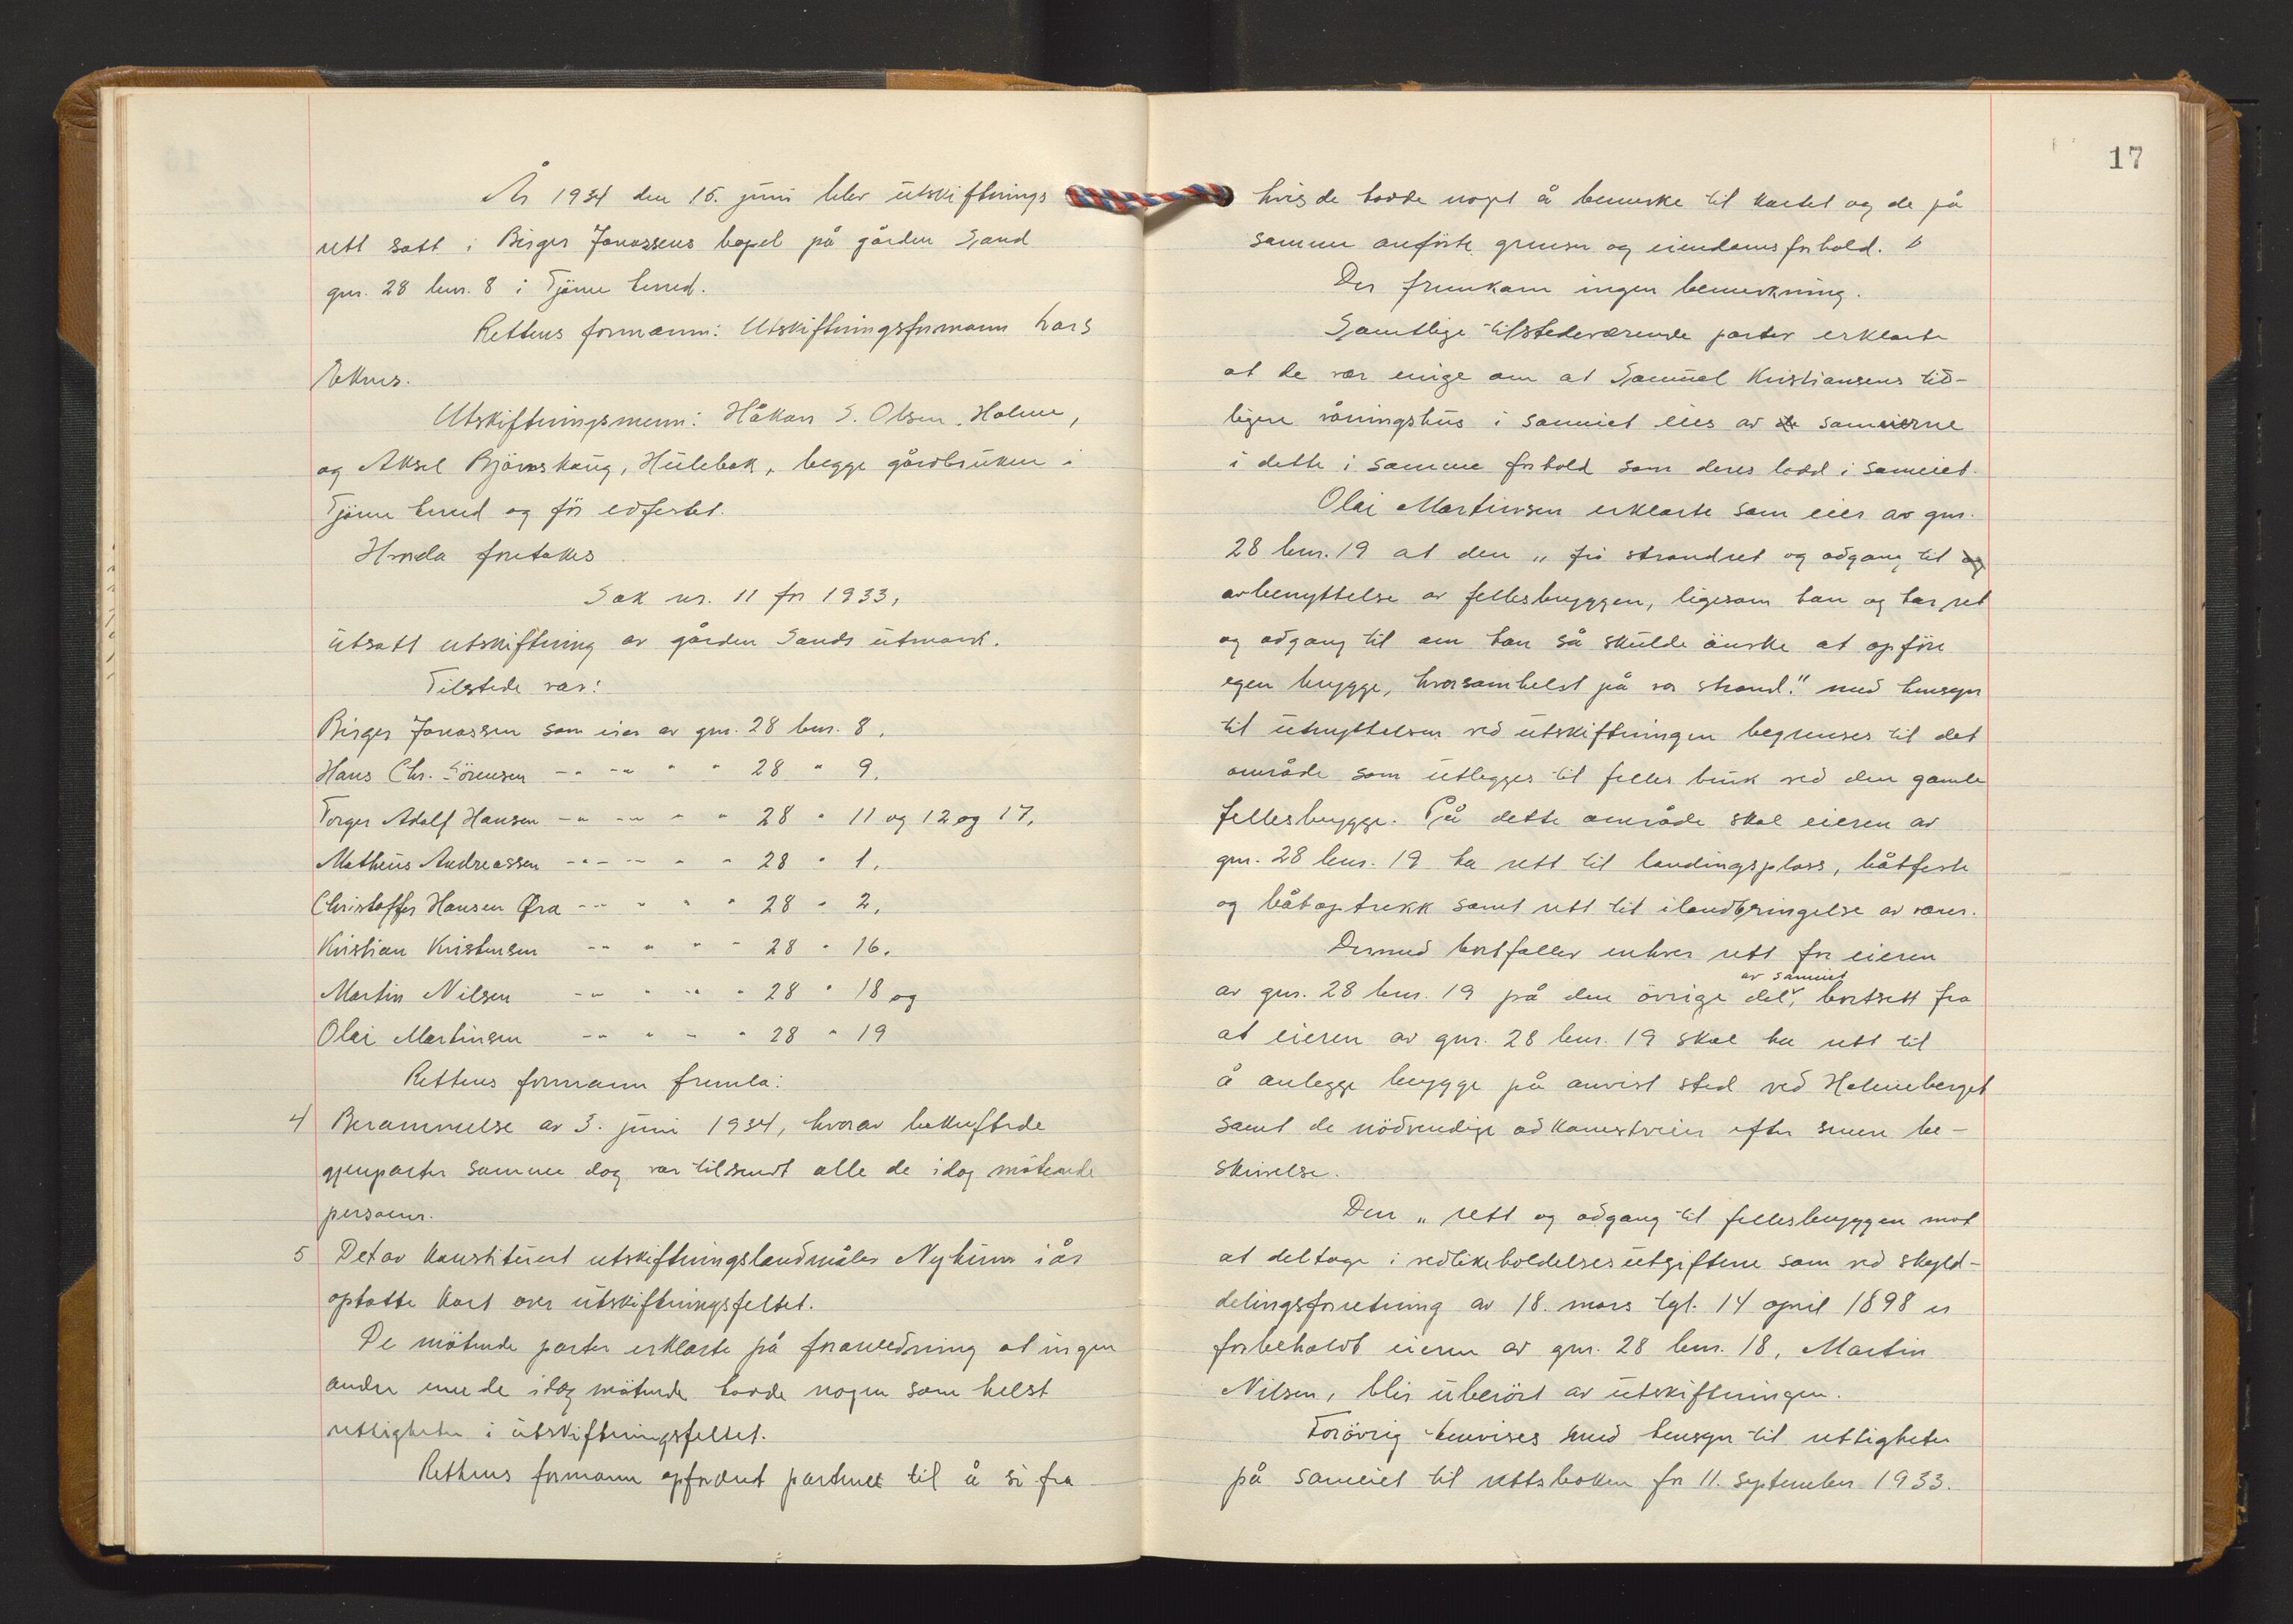 År 1934 den 15. juni blev utskiftnings
rett satt i Birger Jonassens bopel på gården Sand
gnr. 28 bnr. 8 i Tjöme herred.
Rettens formann: Utskiftningsformann Lars
Eknes.
Utskiftningsmenn: Håkon S. Olsen, Holme,
og Aksel Bjönskaug, Hulebak, begge gårdbruker i
Tjöme herred og för edfestet.
Hvorda foretokes
Sak nr. 11 for 1933,
utsatt utskiftning av gården Sands utmark.
Tilstede var:
Birger Jonassen som eier av gnr. 28 bnr. 8.
Hans Chr. Sörensen -"- -"- " " 28 " 9.
Torger Adolf Hansen -"- -"- " " 28 " 11 og 12 og 17.
Matheus Andreassen -"- -"- " " 28 " 1.
Christoffer Hansen Øra -"- " " " 28 " 2.
Kristian Kristensen -"- " " " 28 " 16.
Martin Nilsen -"- " -"- " 28 " 18 og
Olai Martinsen -"- " " " 28 " 19
Rettens formann fremla:
4 Berammelse av 3. juni 1934, hvorav bekreftede
gjenparter samme dag var tilsendt alle de idag mötende
personer.
5 Det av konstituert utskiftningslandmåler Nyhuus i år
optatte kart over utskiftningsfeltet.
De mötende parter erklærte på foranledning at ingen
andre enn de idag mötende hadde nogen som helst
rettigheter i utskiftningsfeltet.
Rettens formann opfordret partene til å si fra
17
hvis de hadde noget å bemerke til kartet og de på
samme anförte grenser og eiendomsforhold.
Der fremkom ingen bemerkning.
Samtlige tilstedeværende parter erklærte
at de var enige om at Samuel Kristiansens tid-
ligere våningshus i sameiet eies av de sameierne
i dette i samme forhold som deres lodd i sameiet.
Olai Martinsen erklærte som eier av gnr.
28 bnr. 19 at den „fri strandret og adgang til og
avbenyttelse av fellesbryggen, ligesom han og har ret
og adgang til om han så skulde önske at opföre
egen brygge, hvorsomhelst på vor strand." med hensyn
til utnyttelsen ved utskiftningen begrenses til det
område som utlegges til felles bruk ved den gamle
fellesbrygge. På dette område skal eieren av
gnr. 28 bnr. 19 ha rett til landingsplass, båtfeste
og båtoptrekk samt rett til ilandbringelse av varer.
Dermed bortfaller enhver rett for eieren
av sameiet
av gnr. 28 bnr. 19 på den övrige del, bortsett fra
at eieren av gnr. 28 bnr. 19 skal ha rett til
å anlegge brygge på anvist sted ved Holmeberget
samt de nödvendige adkomstveier efter senere be-
skrivelse.
Den „rett og adgang til fellesbryggen mot
at deltage i vedlikeholdelsesutgiftene som ved skyld-
delingsforretning av 18. mars tgl. 14 april 1898 er
forbeholdt eieren av gnr. 28 bnr. 18, Martin
Nilsen, blir uberört av utskiftningen.
Forövrig henvises med hensyn til rettigheter
på sameiet til rettsboken for 11. september 1933.